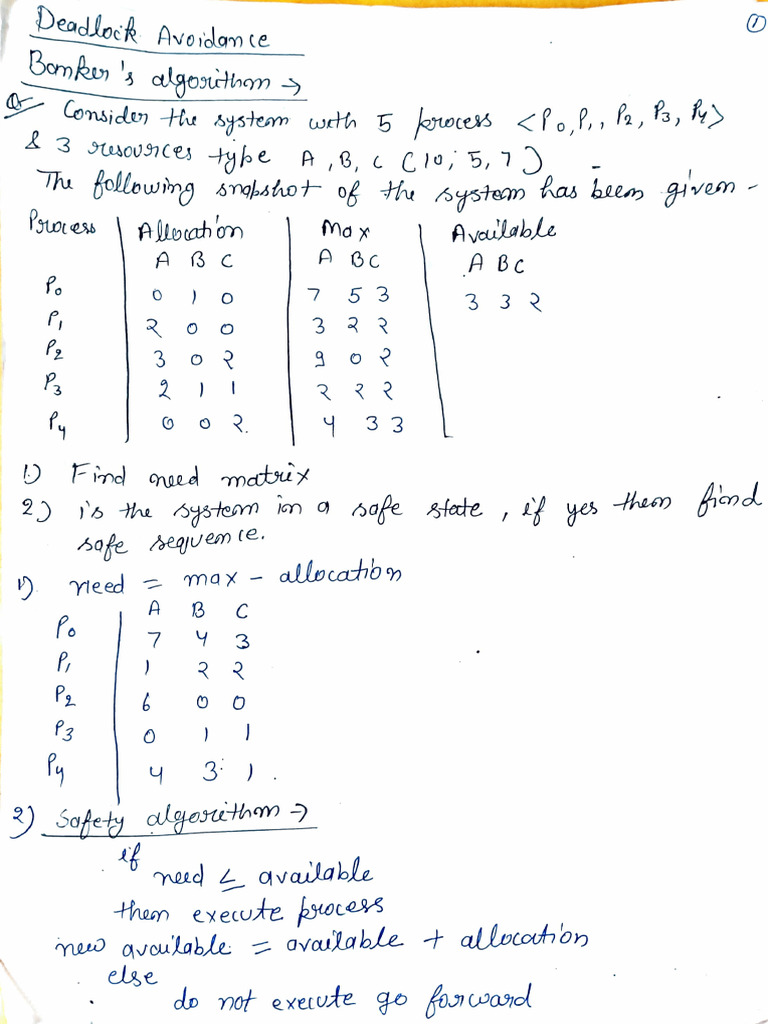 ①
Deadlock Avoidance
Banker's algorithm →
Q Consider the system with 5 process <P0, P1, P2, P3, P4>
& 3 resources type A, B, C (10, 5, 7)
The following snapshot of the system has been given -
Process Allocation Max Available
A B C A B C A B C
P0 0 1 0 7 5 3 3 3 2
P1 2 0 0 3 2 2
P2 3 0 2 9 0 2
P3 2 1 1 2 2 2
P4 0 0 2 4 3 3
1.) Find need matrix
2.) is the system in a safe state, if yes then find
safe sequence.
1). need = max - allocation
A B C
P0 7 4 3
P1 1 2 2
P2 6 0 0
P3 0 1 1
P4 4 3 1.
2) Safety algorithm →
if
need ≤ available
then execute process
new available = available + allocation
else
do not execute go forward